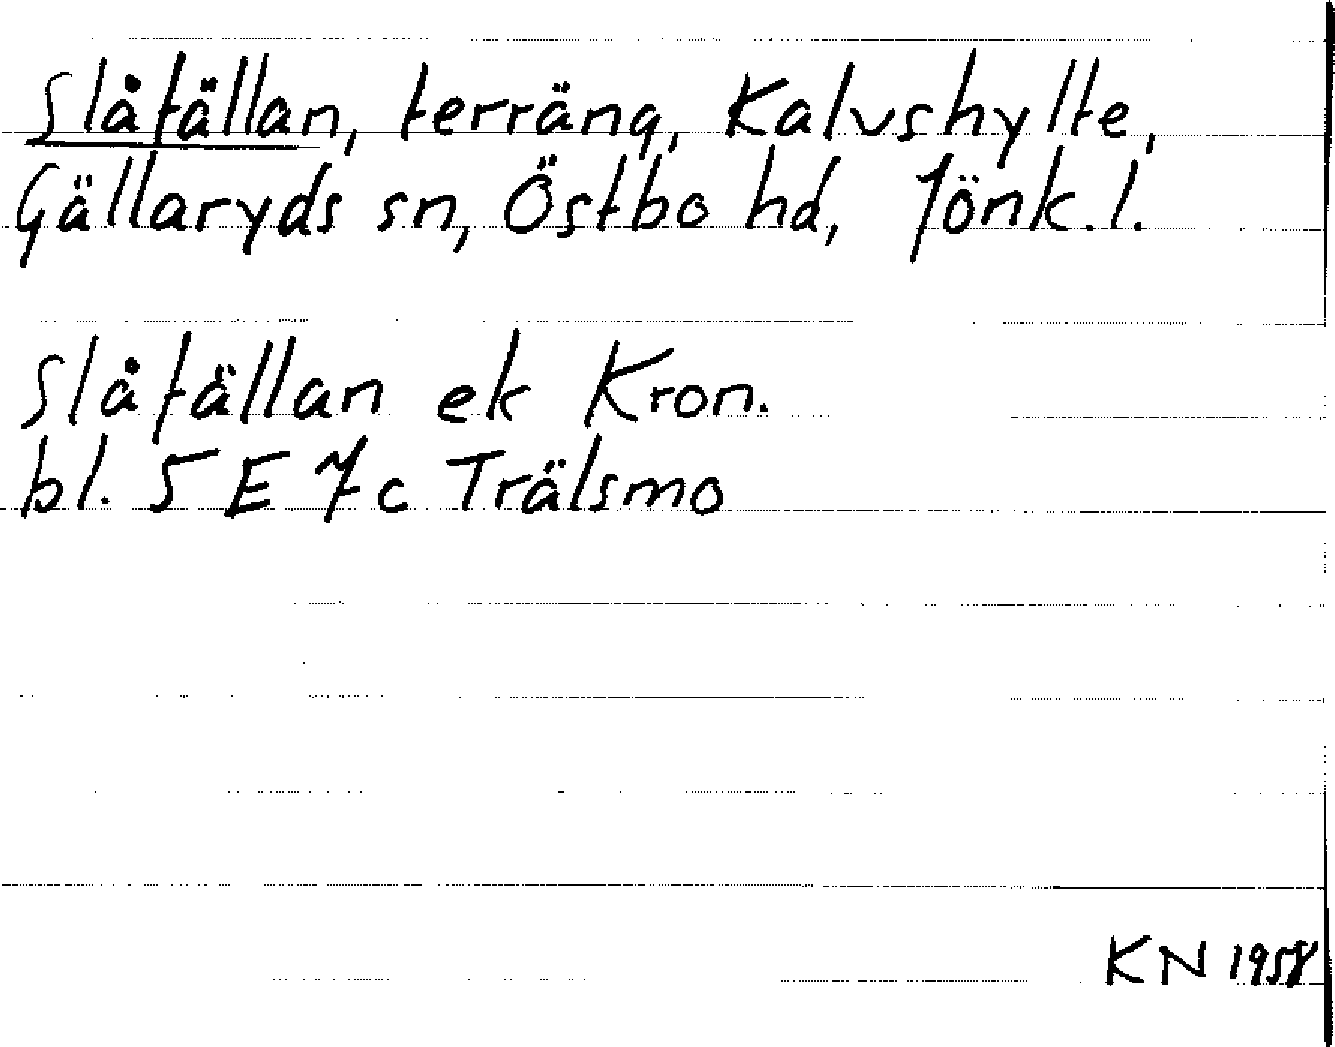 Slåfällan, terräng, Kalvshylte,
Gällaryds sn, Östbo hd, Jönk. l.
Slåfällan ek Kron.
bl. 5 E 7c Trälsmo
KN 1958